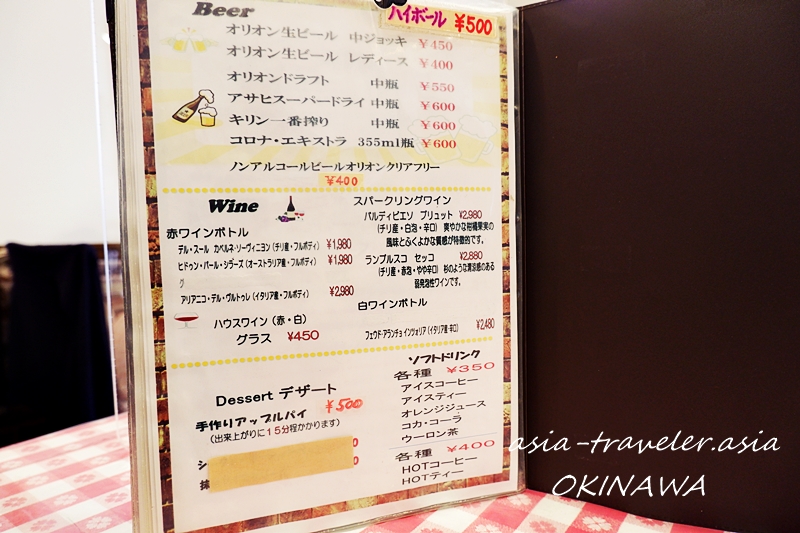 ハイボール ¥500
Beer
オリオン生ビール 中ジョッキ ¥450
オリオン生ビール レディース ¥400
オリオンドラフト 中瓶 ¥550
アサヒスーパードライ 中瓶 ¥600
キリン一番搾り 中瓶 ¥600
コロナ・エキストラ 355ml瓶 ¥600
ノンアルコールビールオリオンクリアフリー
¥400
Wine
赤ワインボトル
デル・スール カベルネ・ソーヴィニヨン（チリ産・フルボディ） ¥1,980
ヒドゥン・パール・シラーズ（オーストラリア産・フルボディ） ¥1,980
グ
アリアニコ・デル・ヴルトゥレ（イタリア産・フルボディ） ¥2,980
ハウスワイン（赤・白）
グラス ¥450
スパークリングワイン
バルディビエソ ブリュット ¥2,980
（チリ産・白泡・辛口） 爽やかな柑橘果実の
風味とふくよかな質感が特徴的です。
ランブルスコ セッコ ¥2,880
（チリ産・赤泡・やや辛口） 杉のような清涼感のある
弱発泡性ワインです。
白ワインボトル
フェウド・アランチョ インツォリア（イタリア産・辛口） ¥2,480
Dessert デザート
手作りアップルパイ ¥500
（出来上がりに15分程かかります）
ソフトドリンク
各種 ¥350
アイスコーヒー
アイスティー
オレンジジュース
コカ・コーラ
ウーロン茶
各種 ¥400
HOTコーヒー
HOTティー
asia-traveler.asia
OKINAWA